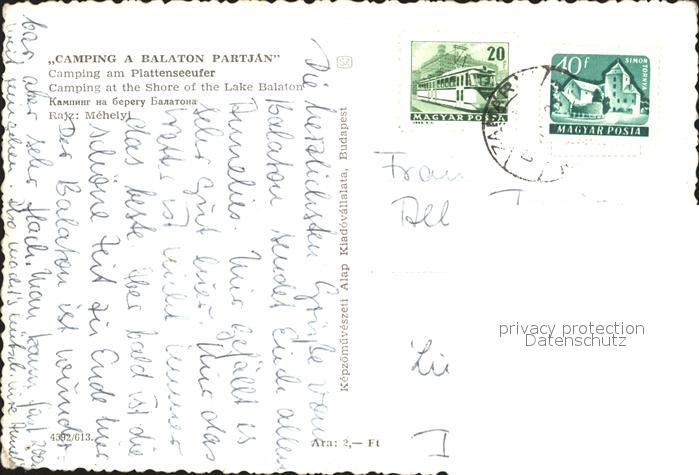 „CAMPING A BALATON PARTJÁN"
Camping am Plattenseeufer
Camping at the Shore of the Lake Balaton
Кампинг на берегу Балатона
Rajz: Méhelyi
20
MAGYAR POSTA
40 f
SIMON
TORNYA
MAGYAR POSTA
Képzőművészeti Alap Kiadóvállalata, Budapest
Die herzlichsten Grüße vom
Balaton sendet Euch allen
Annelies. Mir gefällt es
sehr gut hier. Nur das
Wetter ist nicht immer
das beste. Aber bald ist die
schöne Zeit zu Ende hier.
Der Balaton ist wunder-
bar aber sehr flach. Man kann fast 200
Frau
All
privacy protection
Datenschutz
4392/613.
Ára: 2,— Ft